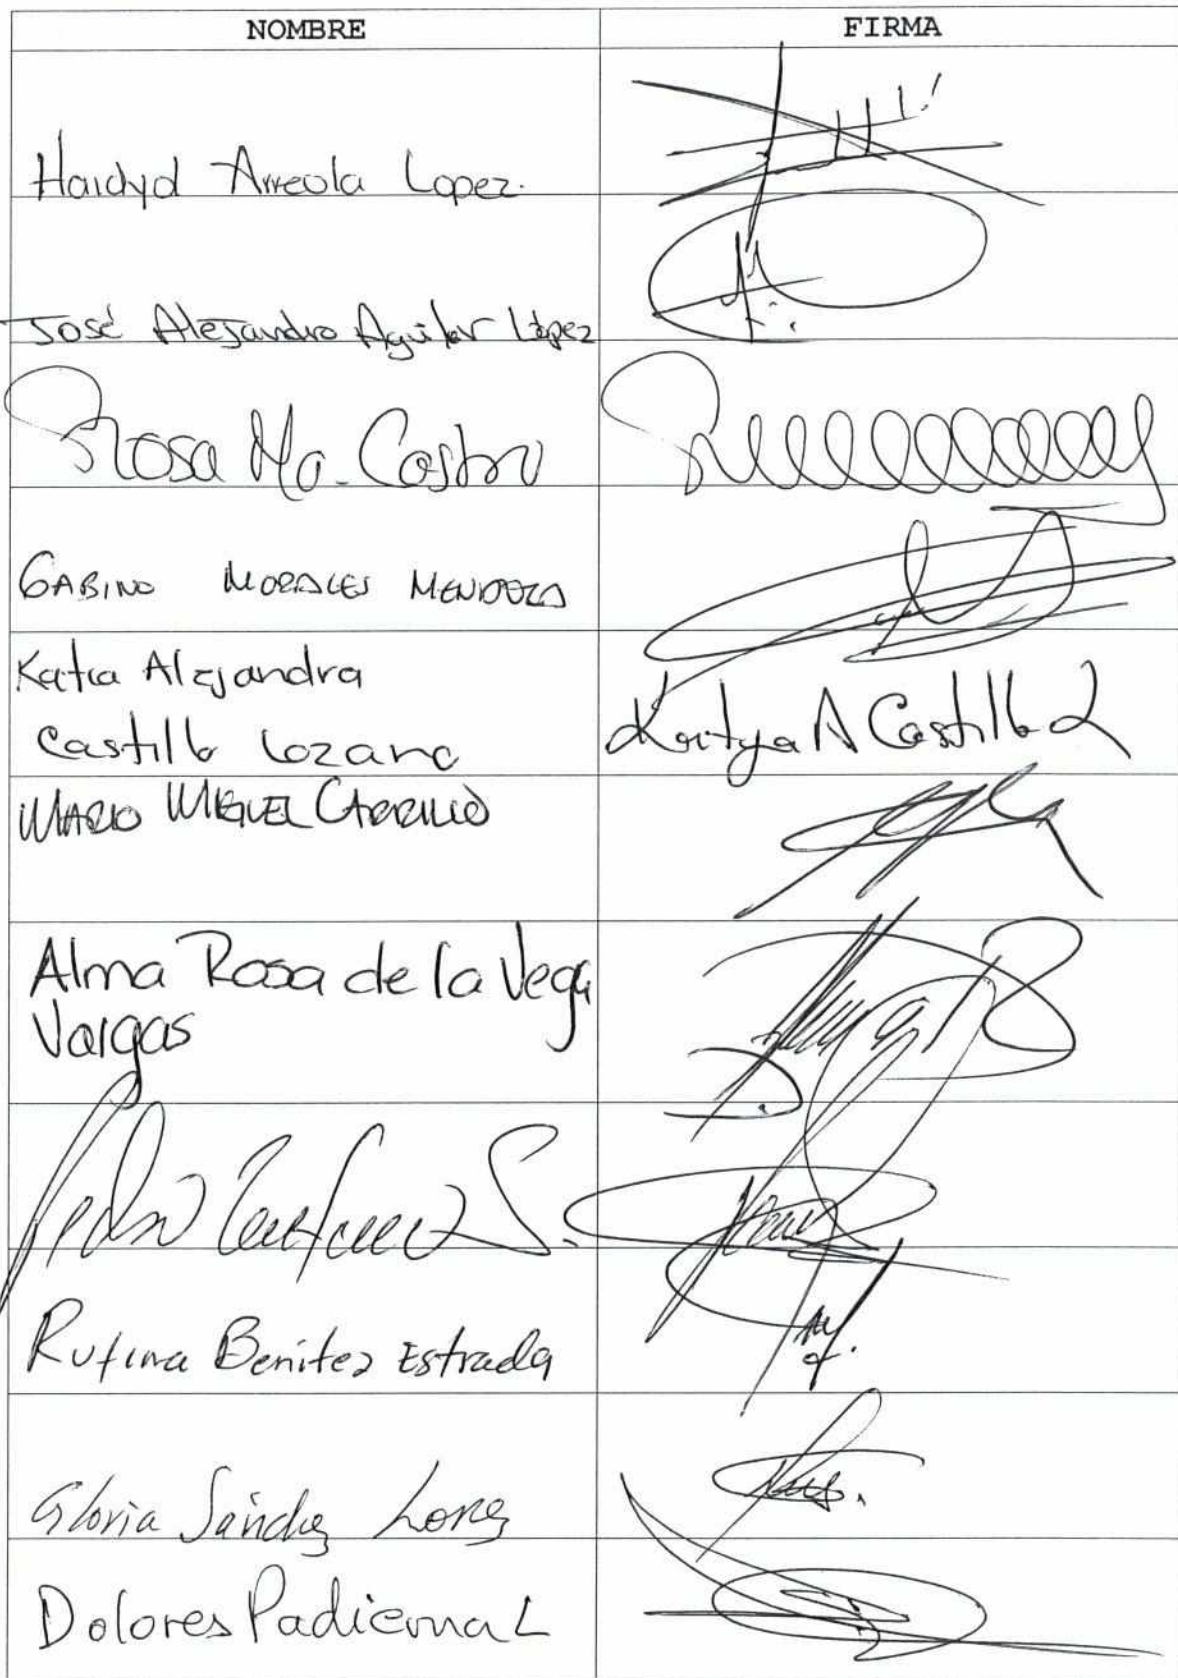 NOMBRE FIRMA
Haidyd Arreola Lopez.
José Alejandro Aguilar López
Rosa Ma. Castro
GABINO MORALES MENDOZA
Katia Alejandra
Castillo Lozano Katya A Castillo L
MARIO MIGUEL CARRILLO
Alma Rosa de la Vega
Vargas
Pedro S.
Rufina Benítez Estrada
Gloria Sánchez López
Dolores Padierna L